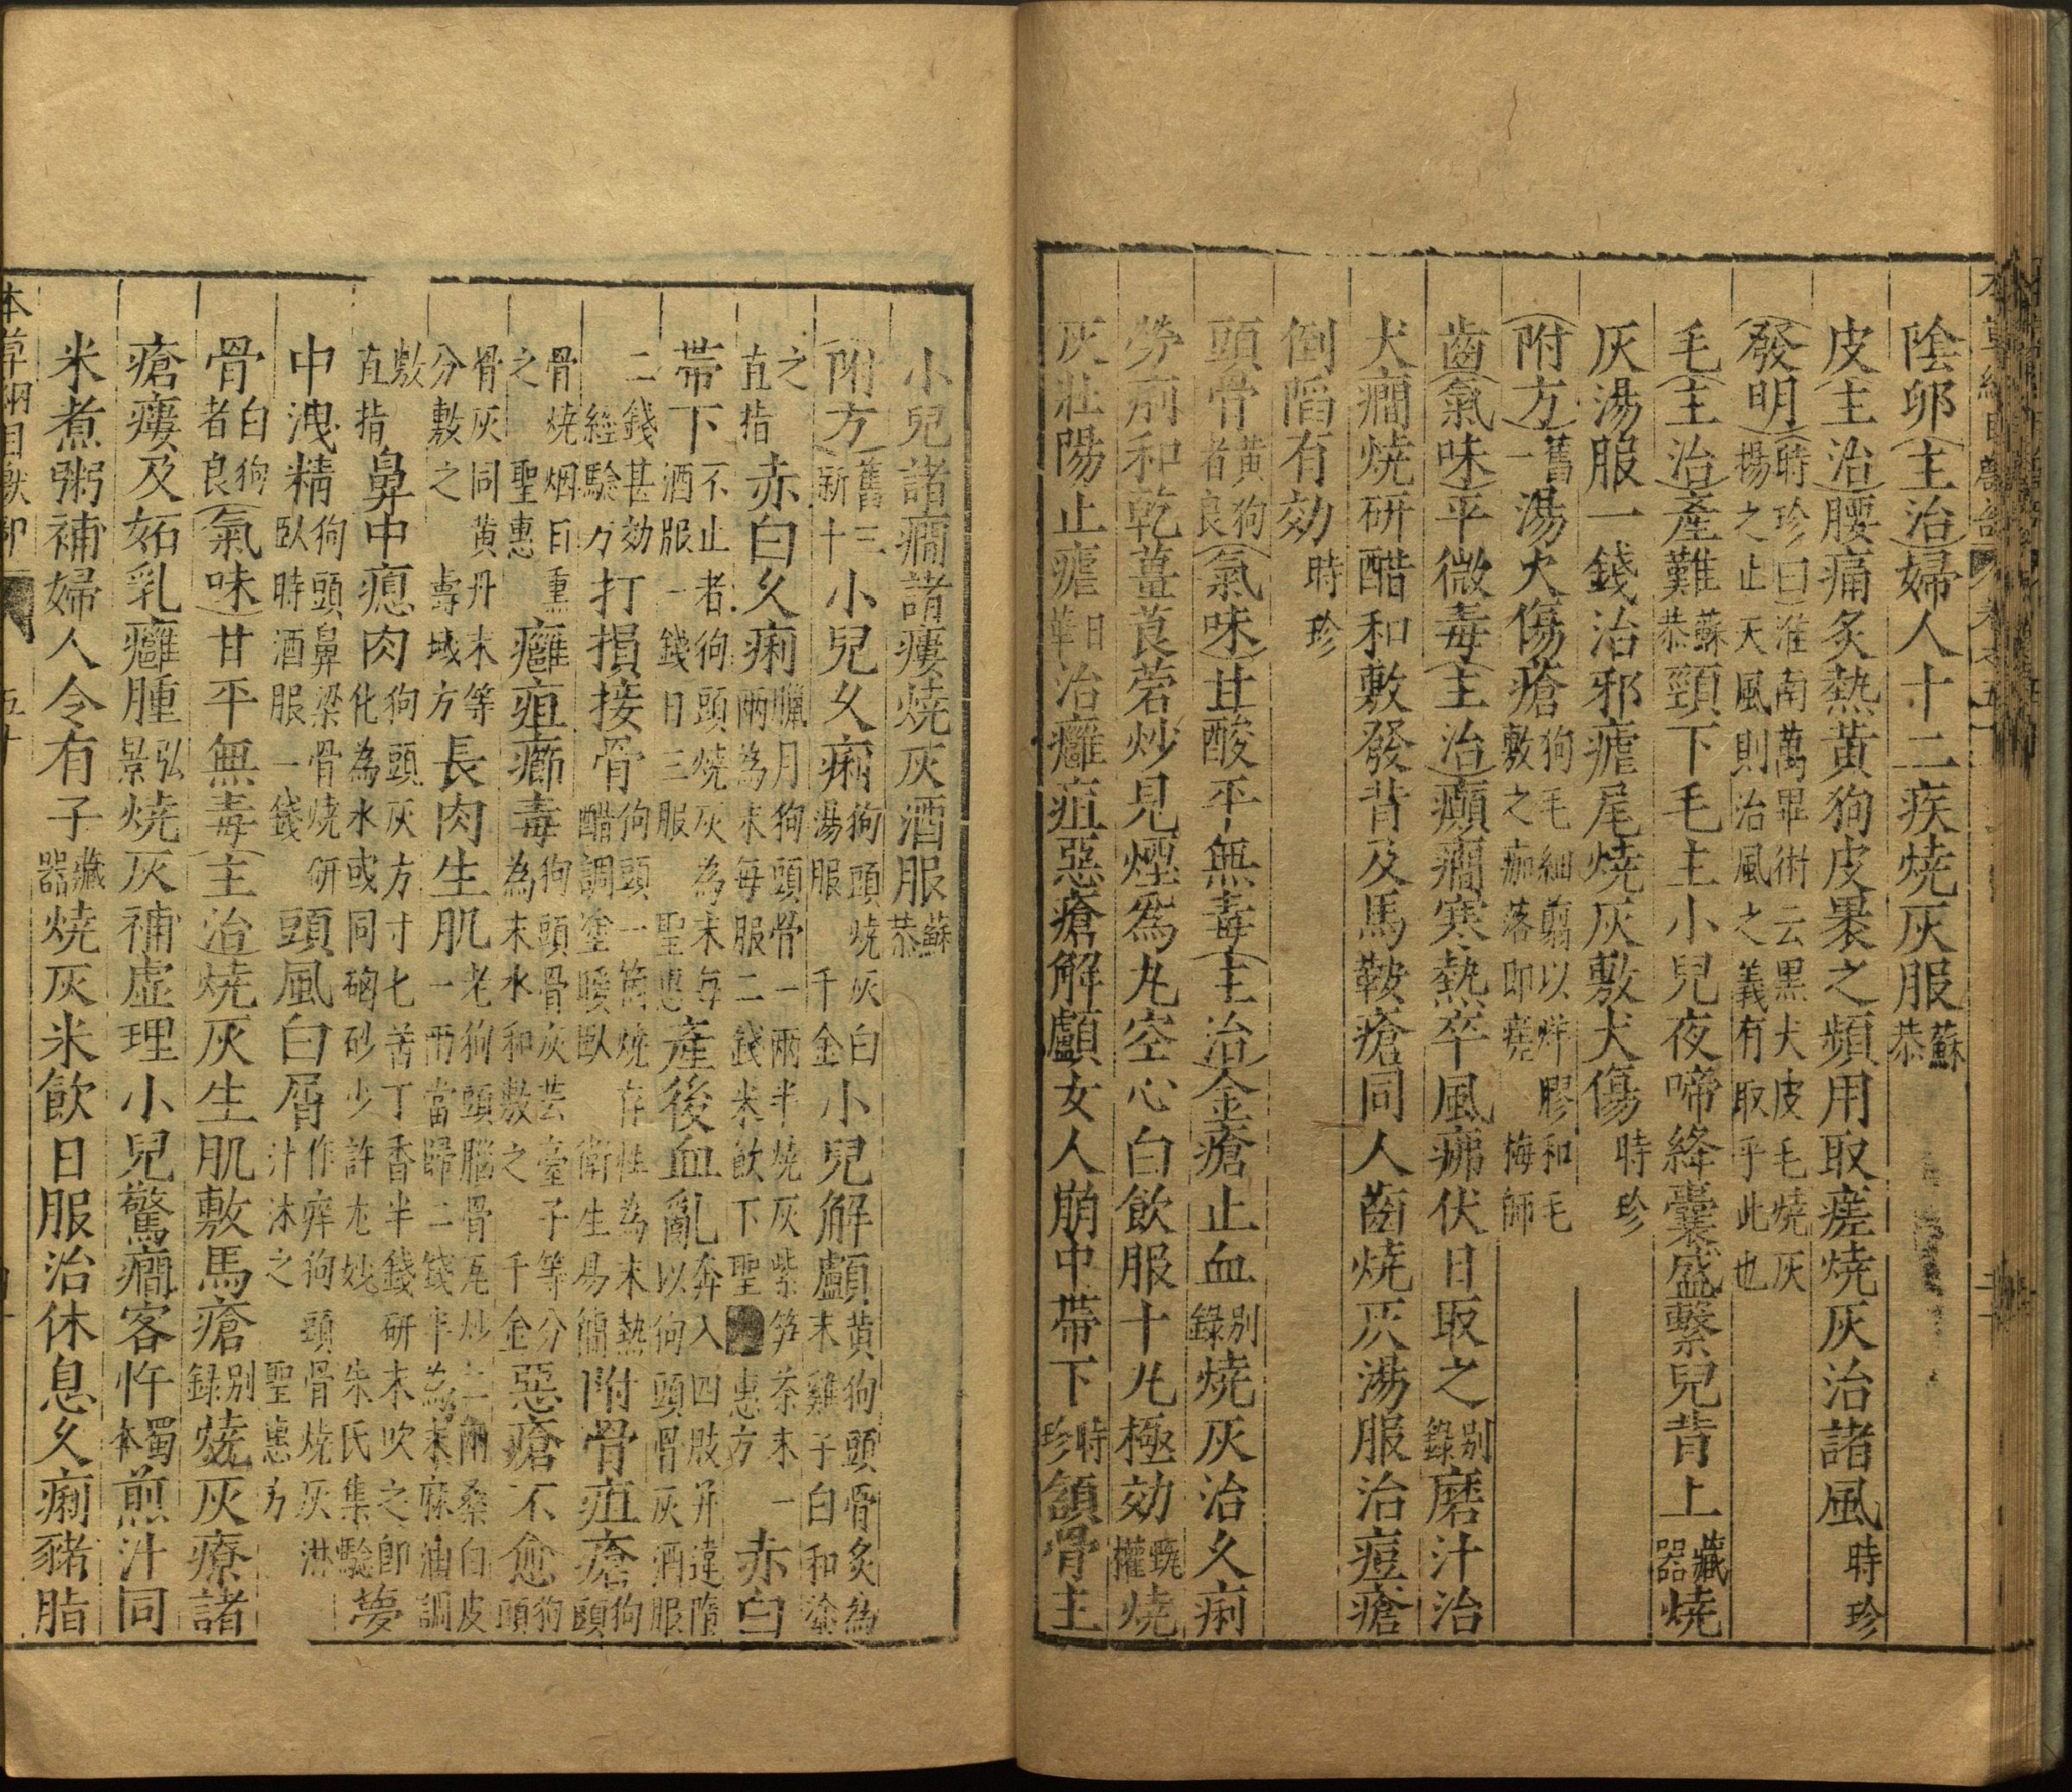 陰卵主治婦人十二疾燒灰服蘇恭
皮主治腰痛炙熱黃狗皮裹之頻用取瘥燒灰治諸風時珍
發明時珍曰淮南萬畢術云黑犬皮毛燒灰揚之止天風則治風之義有取乎此也
毛主治產難蘇恭頸下毛主小兒夜啼絳囊盛繫兒背上藏器燒
灰湯服一錢治邪瘧尾燒灰敷犬傷時珍
附方舊一湯火傷瘡狗毛細翦以烊膠和毛敷之痂落即瘥梅師
齒氣味平微毒主治癲癇寒熱卒風痱伏日取之別錄磨汁治
犬癇燒研醋和敷發背及馬鞍瘡同人齒燒灰湯服治痘瘡
倒陷有効時珍
頭骨黃狗者良氣味甘酸平無毒主治金瘡止血別錄燒灰治久痢
勞痢和乾薑莨菪炒見煙爲丸空心白飲服十丸極効甄權燒
灰壯陽止瘧日華治癰疽惡瘡解顱女人崩中帶下時珍頷骨主
小兒諸癇諸瘻燒灰酒服蘇恭
附方舊三新十小兒久痢狗頭燒灰白湯服千金小兒解顱黃狗頭骨炙為末雞子白和塗
之直指赤白久痢臘月狗頭骨一兩半燒灰紫笋茶末一兩為末每服二錢米飲下聖惠方赤白
帶下不止者狗頭燒灰為末每酒服一錢日三服聖惠產後血亂奔入四肢并違墮以狗頭骨灰酒服
二錢甚効經驗方打損接骨狗頭一箇燒存性為末熱醋調塗暖臥衛生易簡附骨疽瘡狗頭
骨燒烟日熏之聖惠癰疽癤毒狗頭骨灰芸薹子等分為末水和敷之千金惡瘡不愈狗頭
骨灰同黃丹末等分敷之壽域方長肉生肌老狗頭腦骨瓦炒二兩桑白皮一兩當歸二錢半為末麻油調
敷直指鼻中瘜肉狗頭灰方寸七苦丁香半錢研末吹之即化為水或同硇砂少許尤妙朱氏集驗夢
中洩精狗頭鼻梁骨燒研臥時酒服一錢頭風白屑作痒狗頭骨燒灰淋汁沐之聖惠方
骨白狗者良氣味甘平無毒主治燒灰生肌敷馬瘡別錄燒灰療諸
瘡瘻及妬乳癰腫弘景燒灰補虛理小兒驚癇客忤蜀本煎汁同
米煮粥補婦人令有子藏器燒灰米飲日服治休息久痢豬脂